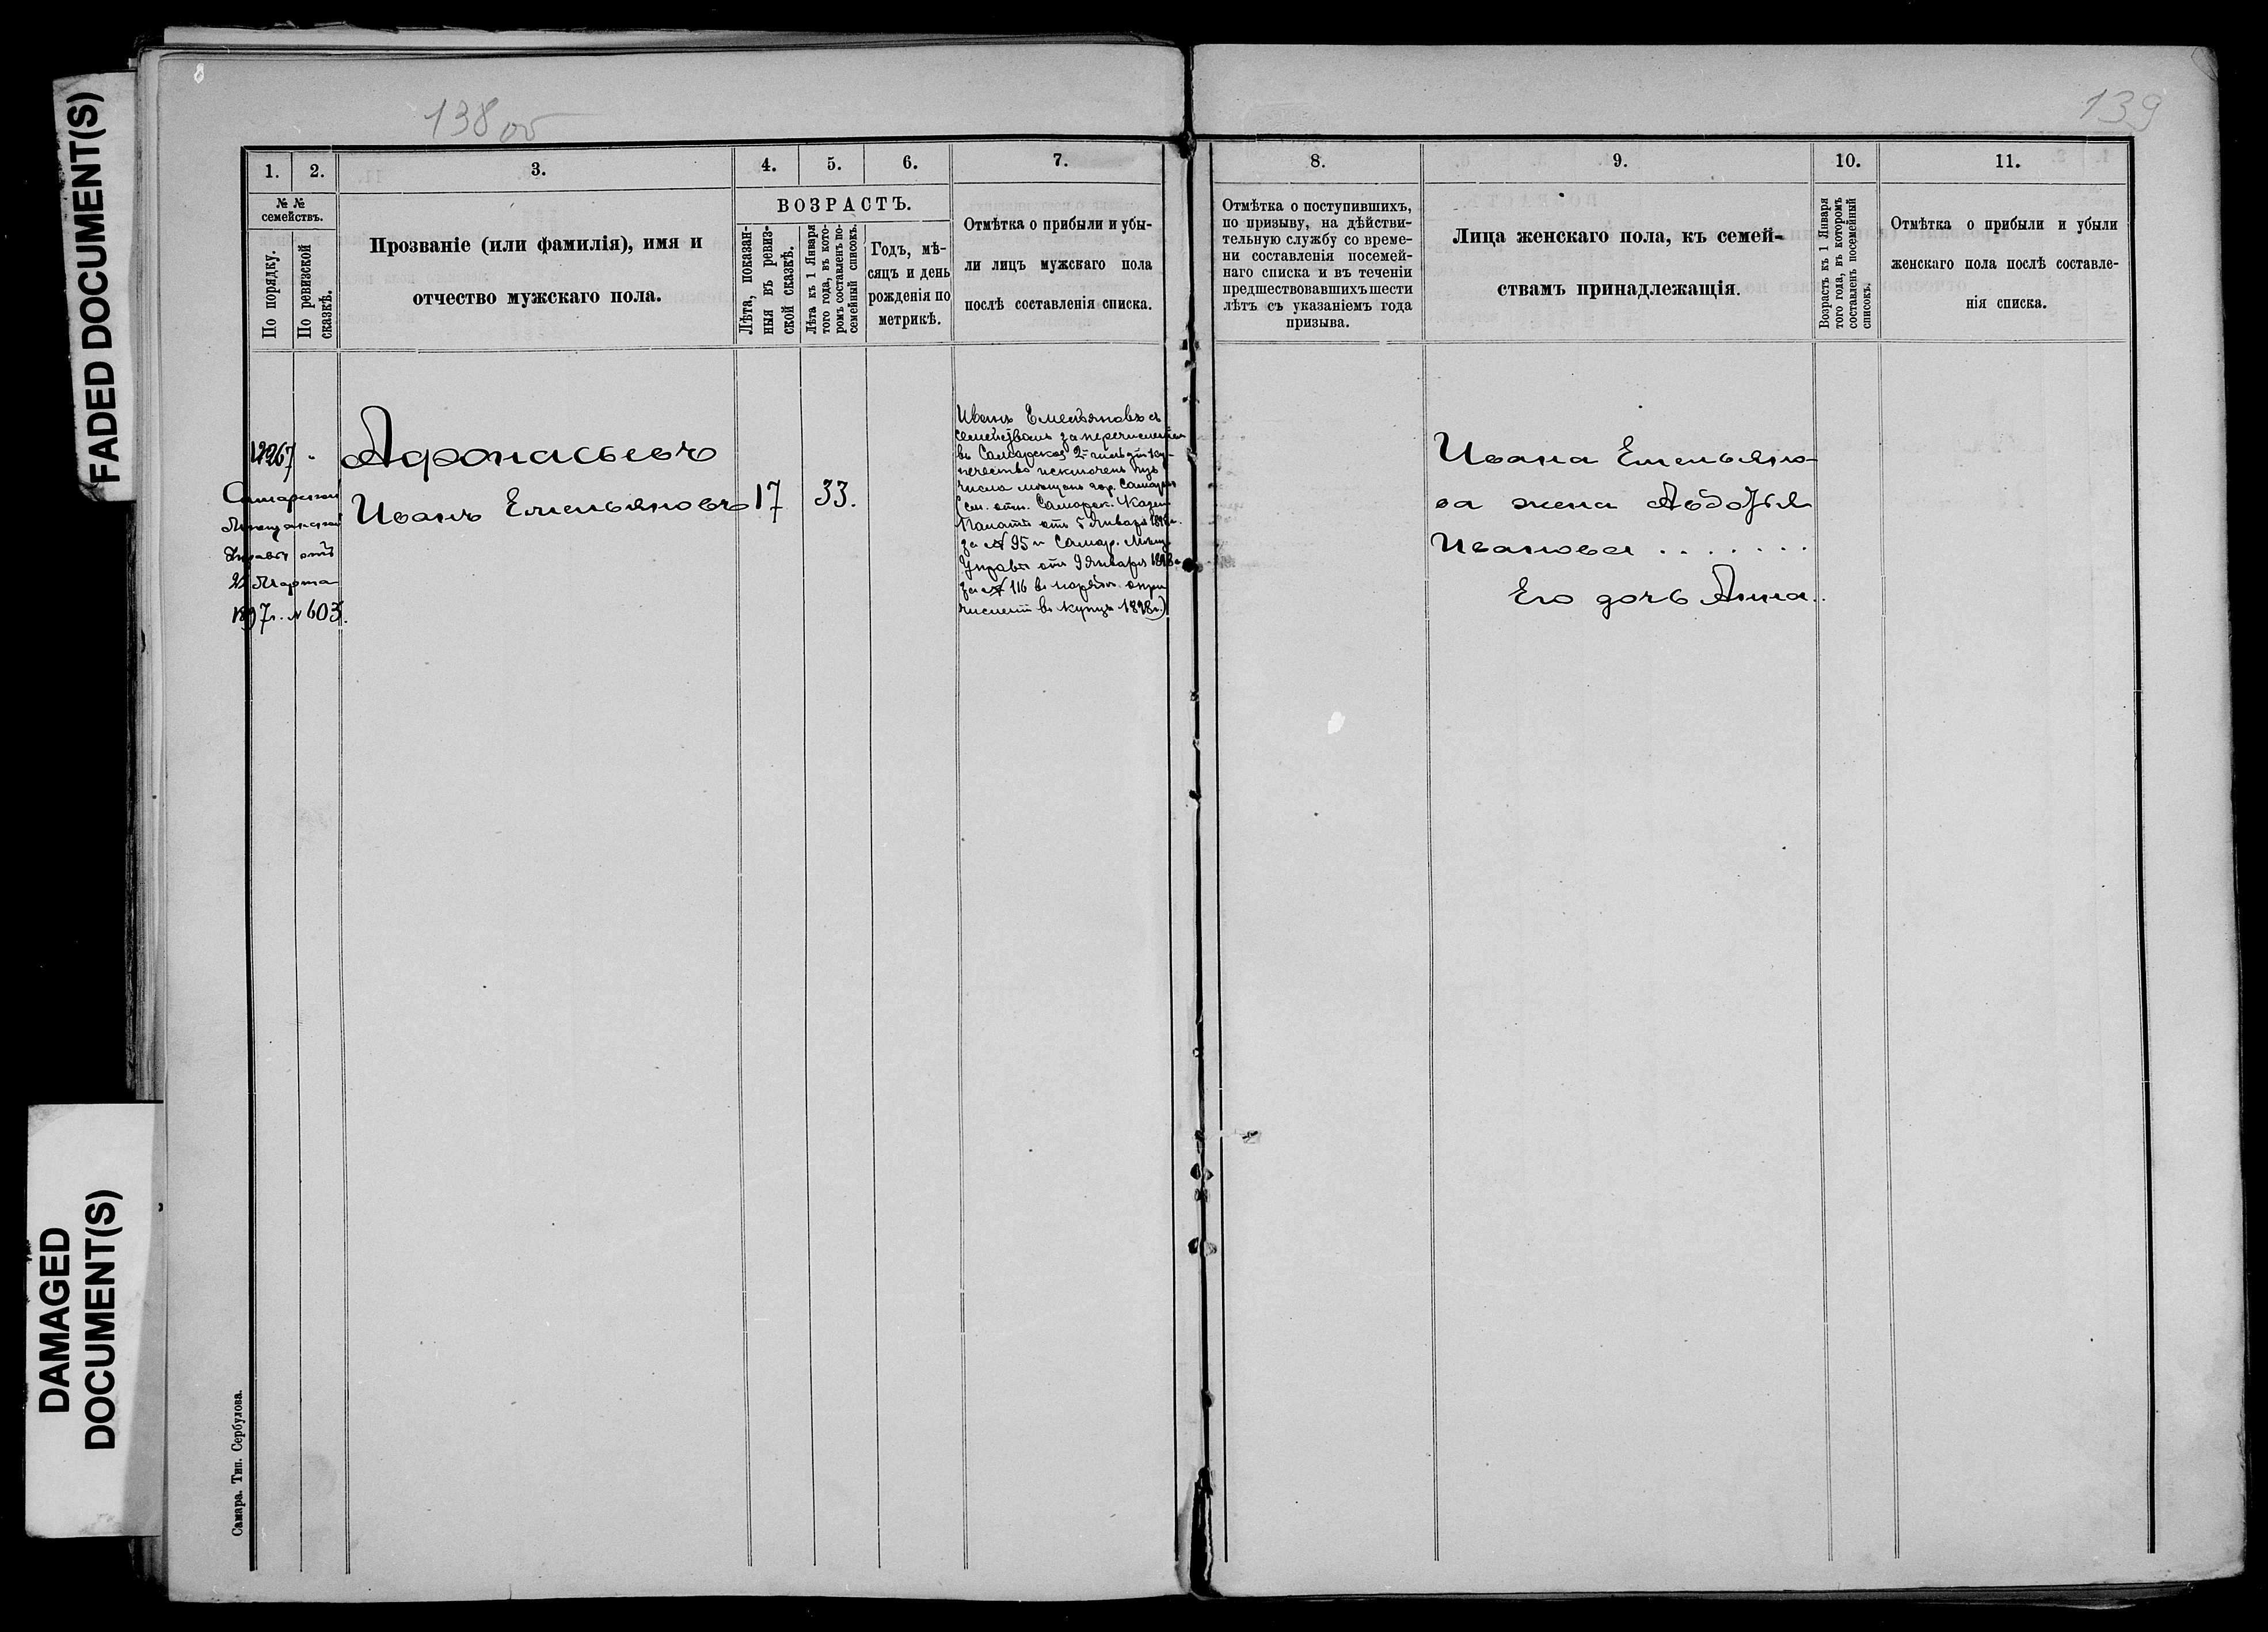 FADED DOCUMENT(S)
DAMAGED
DOCUMENT(S)
138 об
139
1. 2. 3. 4. 5. 6. 7.
№ №
семействъ.
По порядку.
По ревизской
сказкѣ.
Прозваніе (или фамилія), имя и
отчество мужскаго пола.
ВОЗРАСТЪ.
Лѣта, показан-
ныя въ ревиз-
ской сказкѣ.
Лѣта къ 1 Января
того года, въ кото-
ромъ составленъ по-
семейный списокъ.
Годъ, мѣ-
сяцъ и день
рожденія по
метрикѣ.
Отмѣтка о прибыли и убы-
ли лицъ мужскаго пола
послѣ составленія списка.
Самарской
Мѣщанской
Управы отъ
22 Марта
1897г. № 603.
Афонасьевъ
Иванъ Емельяновъ 17 33.
Иванъ Емельяновъ съ
семействомъ за перечисленіем
въ Самарское 2й гильдіи ку-
печество исключенъ изъ
числа мѣщанъ гор. Самары
(см. отн. Самарск. Казен.
Палаты отъ 5 Января 1898г.
за № 95 и Самар. Мѣщ.
Управы отъ 9 Января 1898г.
за № 116
въ купцы 1898г.)
Самара. Тип. Сербулова.
8. 9. 10. 11.
Отмѣтка о поступившихъ,
по призыву, на дѣйстви-
тельную службу со време-
ни составленія посемей-
наго списка и въ теченіи
предшествовавшихъ шести
лѣтъ съ указаніемъ года
призыва.
Лица женскаго пола, къ семей-
ствамъ принадлежащія.
Возрастъ къ 1 Января
того года, въ которомъ
составленъ посемейный
списокъ.
Отмѣтка о прибыли и убыли
женскаго пола послѣ составле-
нія списка.
Ивана Емельяно-
ва жена Авдотья
Иванова . . . . . . .
Его дочь Анна . .